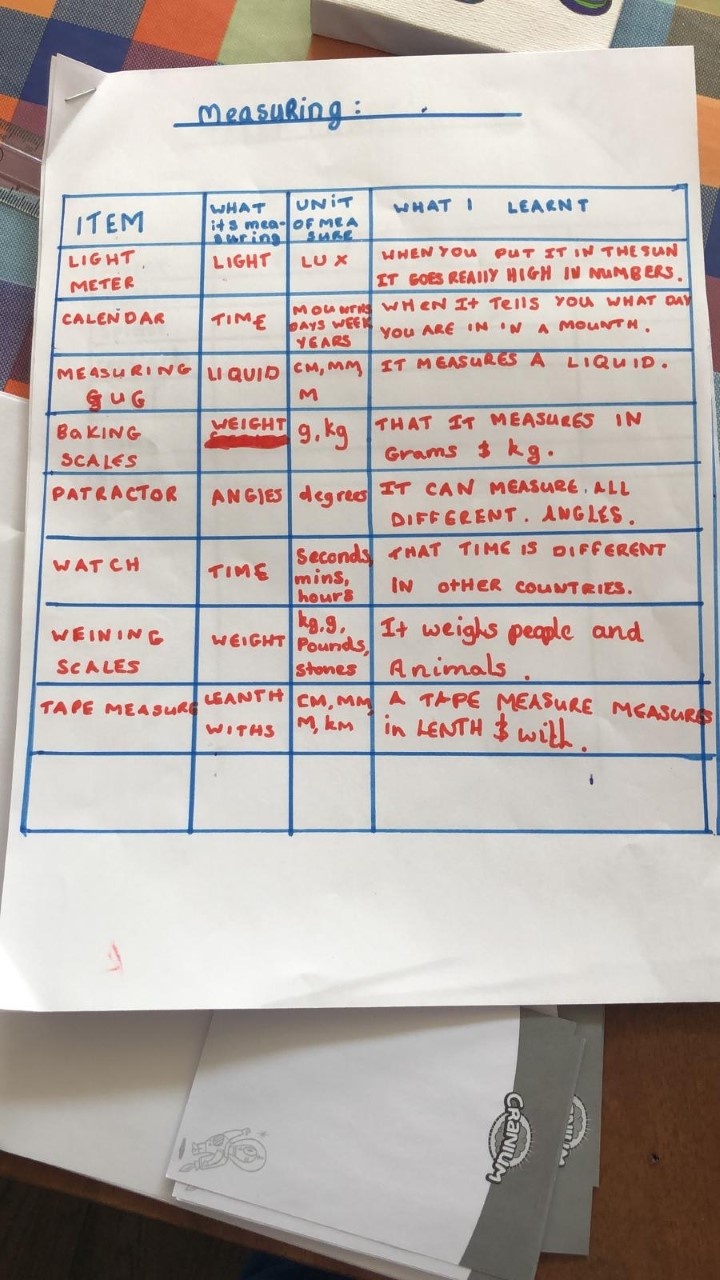 Measuring:
ITEM
WHAT
its mea-
suring
UNIT
OF MEA
SURE
WHAT I LEARNT
LIGHT
METER
LIGHT
LUX
WHEN YOU PUT IT IN THE SUN
IT GOES REALLY HIGH IN NUMBERS.
CALENDAR
TIME
MOUNTHS
DAYS WEEK
YEARS
WHEN It Tells YOU WHAT DAY
YOU ARE IN IN A MOUNTH.
MEASURING
GUG
LIQUID
CM, MM,
M
IT MEASURES A LIQUID.
BAKING
SCALES
WEIGHT
g, kg
THAT IT MEASURES IN
Grams $ kg.
PATRACTOR
ANGlES
degrees
IT CAN MEASURE. ALL
DIFFERENT. ANGLES.
WATCH
TIME
Seconds,
mins,
hours
THAT TIME IS DIFFERENT
IN OTHER COUNTRIES.
WEINING
SCALES
WEIGHT
kg, g,
Pounds,
stones
It weighs people and
Animals.
TAPE MEASURE
LEANTH
WITHS
CM, MM,
M, KM
A TAPE MEASURE MEASURES
in LENTH $ with.
CRANIUM
CRANIUM